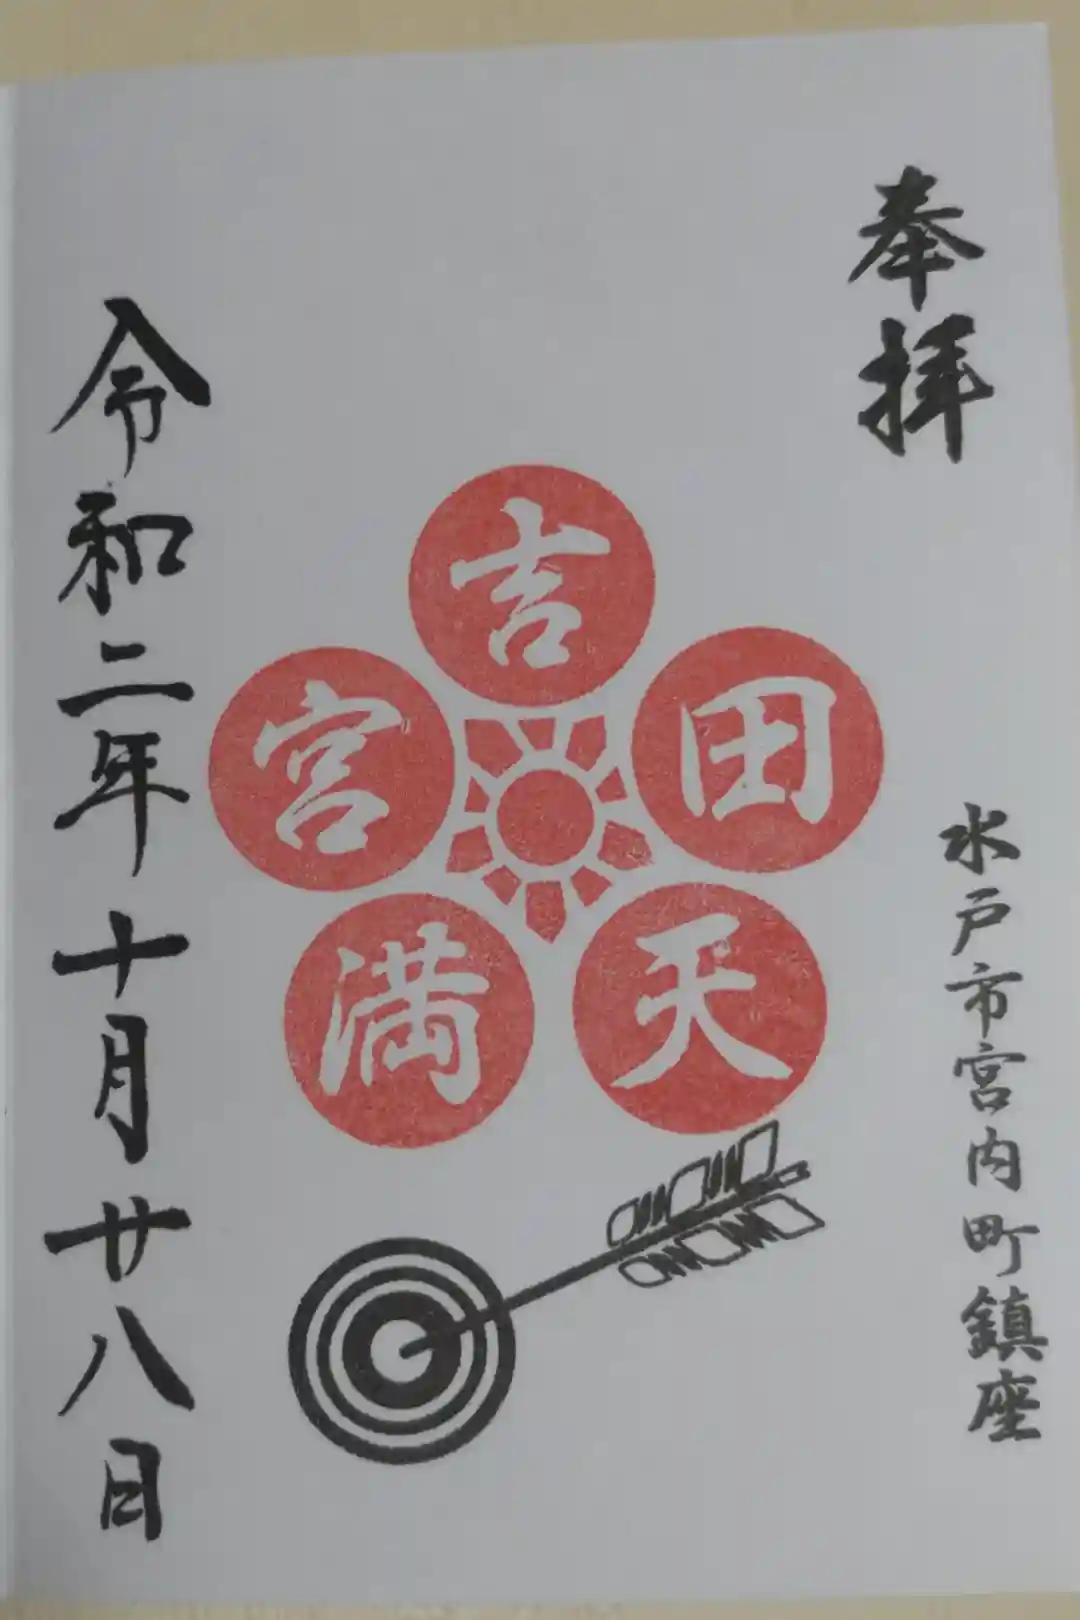 奉拝
水戸市宮内町鎮座
吉田天満宮
令和二年十月廿八日